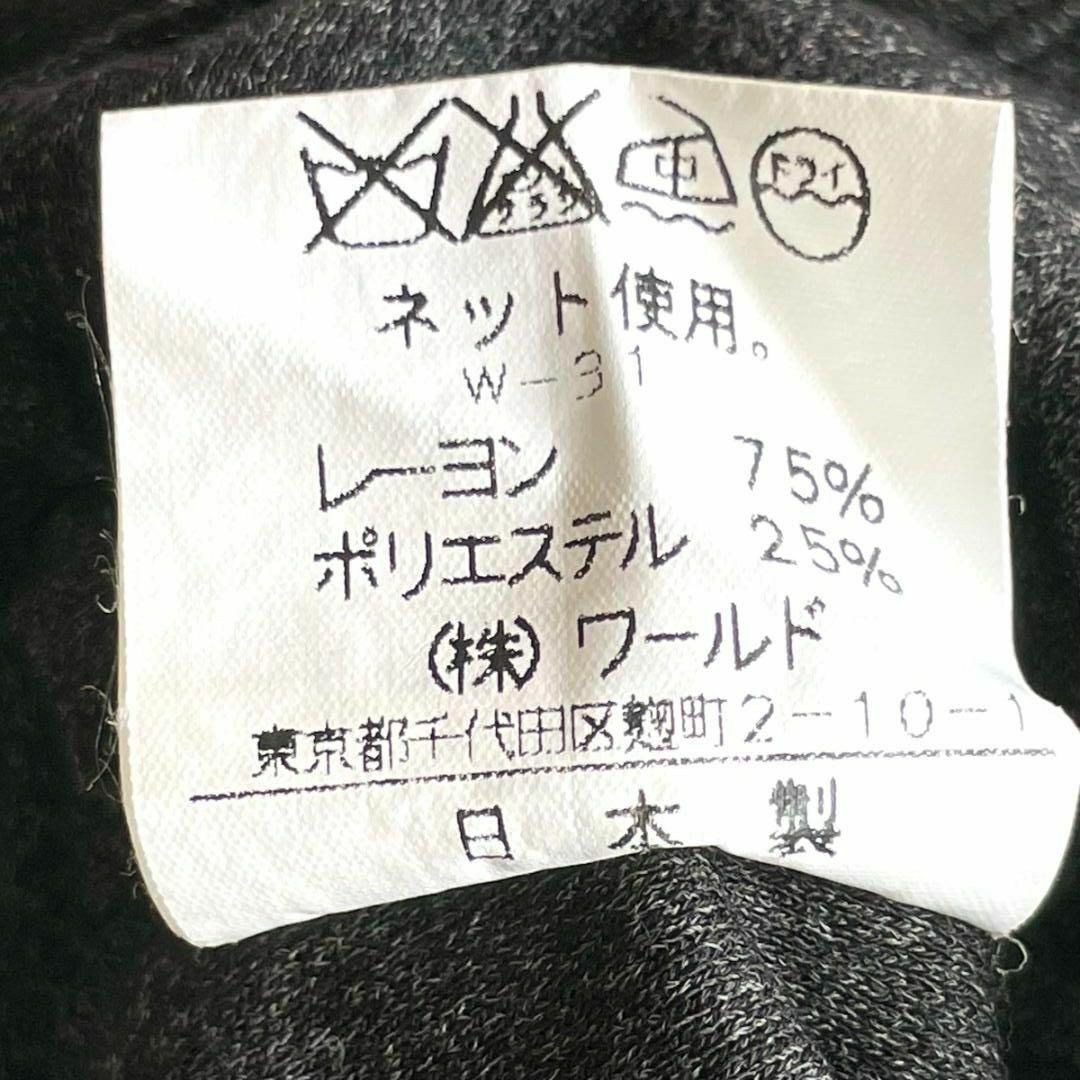 エンソ サラシ 中 ドライ
ネット使用。
W-31
レーヨン 75%
ポリエステル 25%
(株)ワールド
東京都千代田区麹町2-10-1
日本製